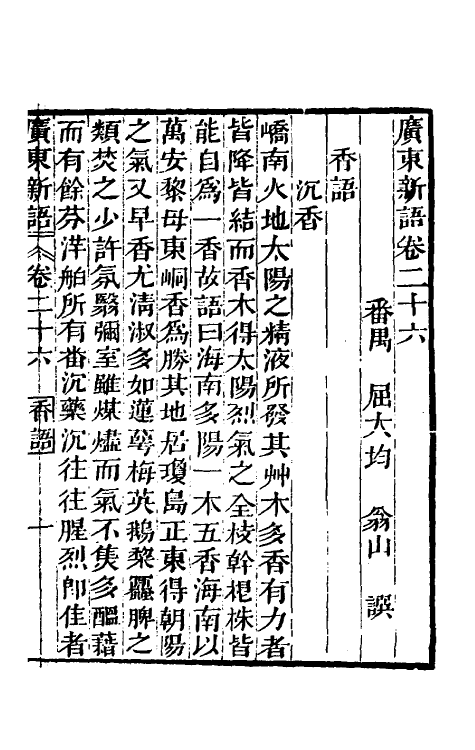 廣東新語卷二十六
番禺 屈大均 翁山 譔
香語
沉香
嶠南火地太陽之精液所發其艸木多香有力者
皆降皆結而香木得太陽烈氣之全枝幹根株皆
能自爲一香故語曰海南多陽一木五香海南以
萬安黎母東峒香爲勝其地居瓊島正東得朝陽
之氣又早香尤清淑多如蓮萼梅英鵝梨蠶脾之
類焚之少許氛翳彌室雖煤燼而氣不焦多醞藉
而有餘芬洋舶所有番沉藥沉往往腥烈卽佳者
廣東新語 卷二十六 香語 一